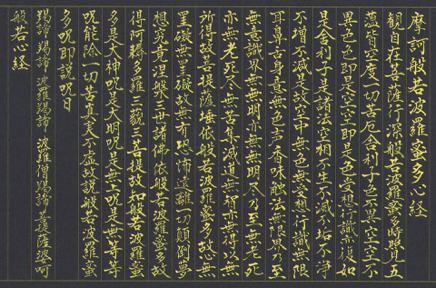 摩訶般若波羅蜜多心經
觀自在菩薩行深般若波羅蜜多時照見五
蘊皆空度一切苦厄舍利子色不異空空不
異色色即是空空即是色受想行識亦復如
是舍利子是諸法空相不生不滅不垢不淨
不增不減是故空中無色無受想行識無眼
耳鼻舌身意無色聲香味觸法無眼界乃至
無意識界無無明亦無無明盡乃至無老死
亦無老死盡無苦集滅道無智亦無得以無
所得故菩提薩埵依般若波羅蜜多故心無
罣礙無罣礙故無有恐怖遠離一切顛倒夢
想究竟涅槃三世諸佛依般若波羅蜜多故
得阿耨多羅三藐三菩提故知般若波羅蜜
多是大神呪是大明呪是無上呪是無等等
呪能除一切苦真實不虛故説般若波羅蜜
多呪即説呪曰
揭諦 揭諦 波羅揭諦 波羅僧揭諦 菩提薩婆訶
般若心經